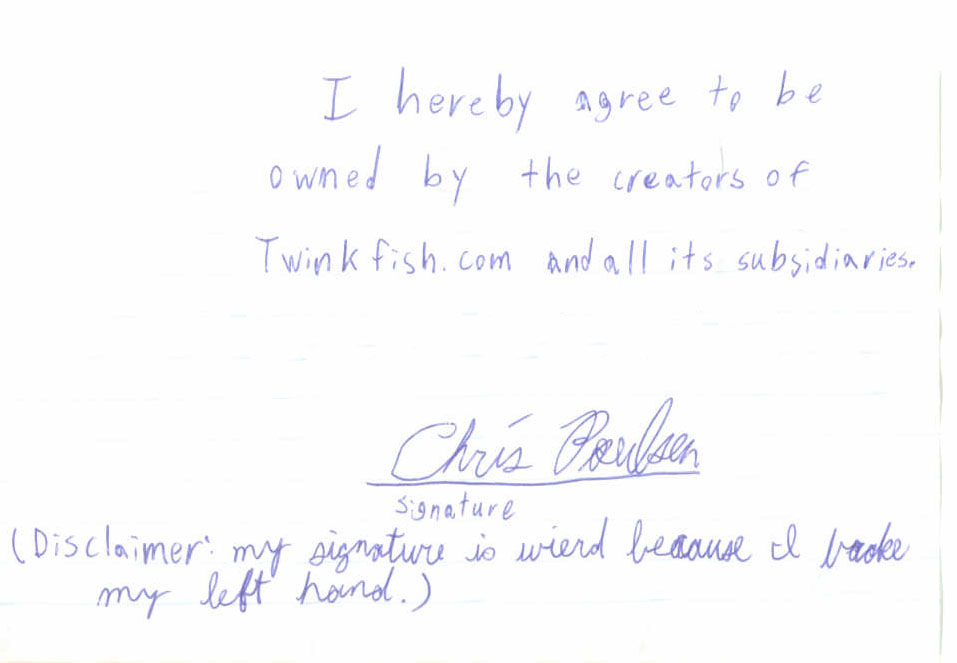 I hereby agree to be
owned by the creators of
Twinkfish.com and all its subsidiaries.
Chris Poulsen
signature
(Disclaimer: my signature is wierd because I broke
my left hand.)